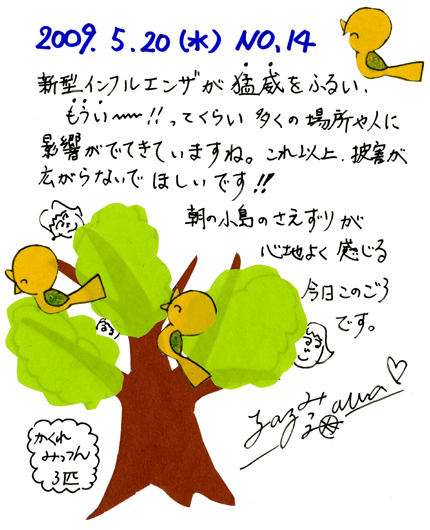 2009. 5.20 (水) NO.14
新型インフルエンザが猛威をふるい、
もうい〜!!ってくらい多くの場所や人に
影響がでてきていますね。これ以上、被害が
広がらないでほしいです!!
朝の小鳥のさえずりが
心地よく感じる
今日このごろ
です。
かくれ
みっつん
3匹